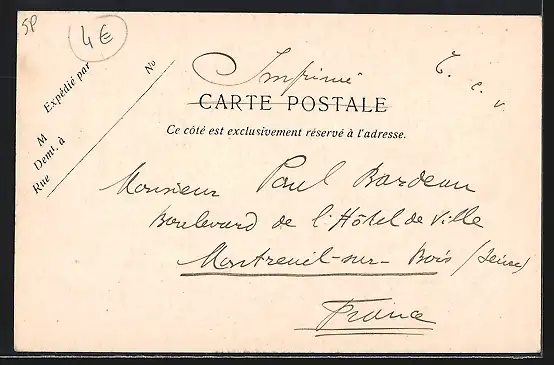 5P
4€
Expédié par
M
Demt. à
Rue
No
Imprimé
T. c. v.
CARTE POSTALE
Ce côté est exclusivement réservé à l'adresse.
Monsieur Paul Bardeau
Boulevard de l'Hôtel de Ville
Montreuil-sur-Bois (Seine)
France